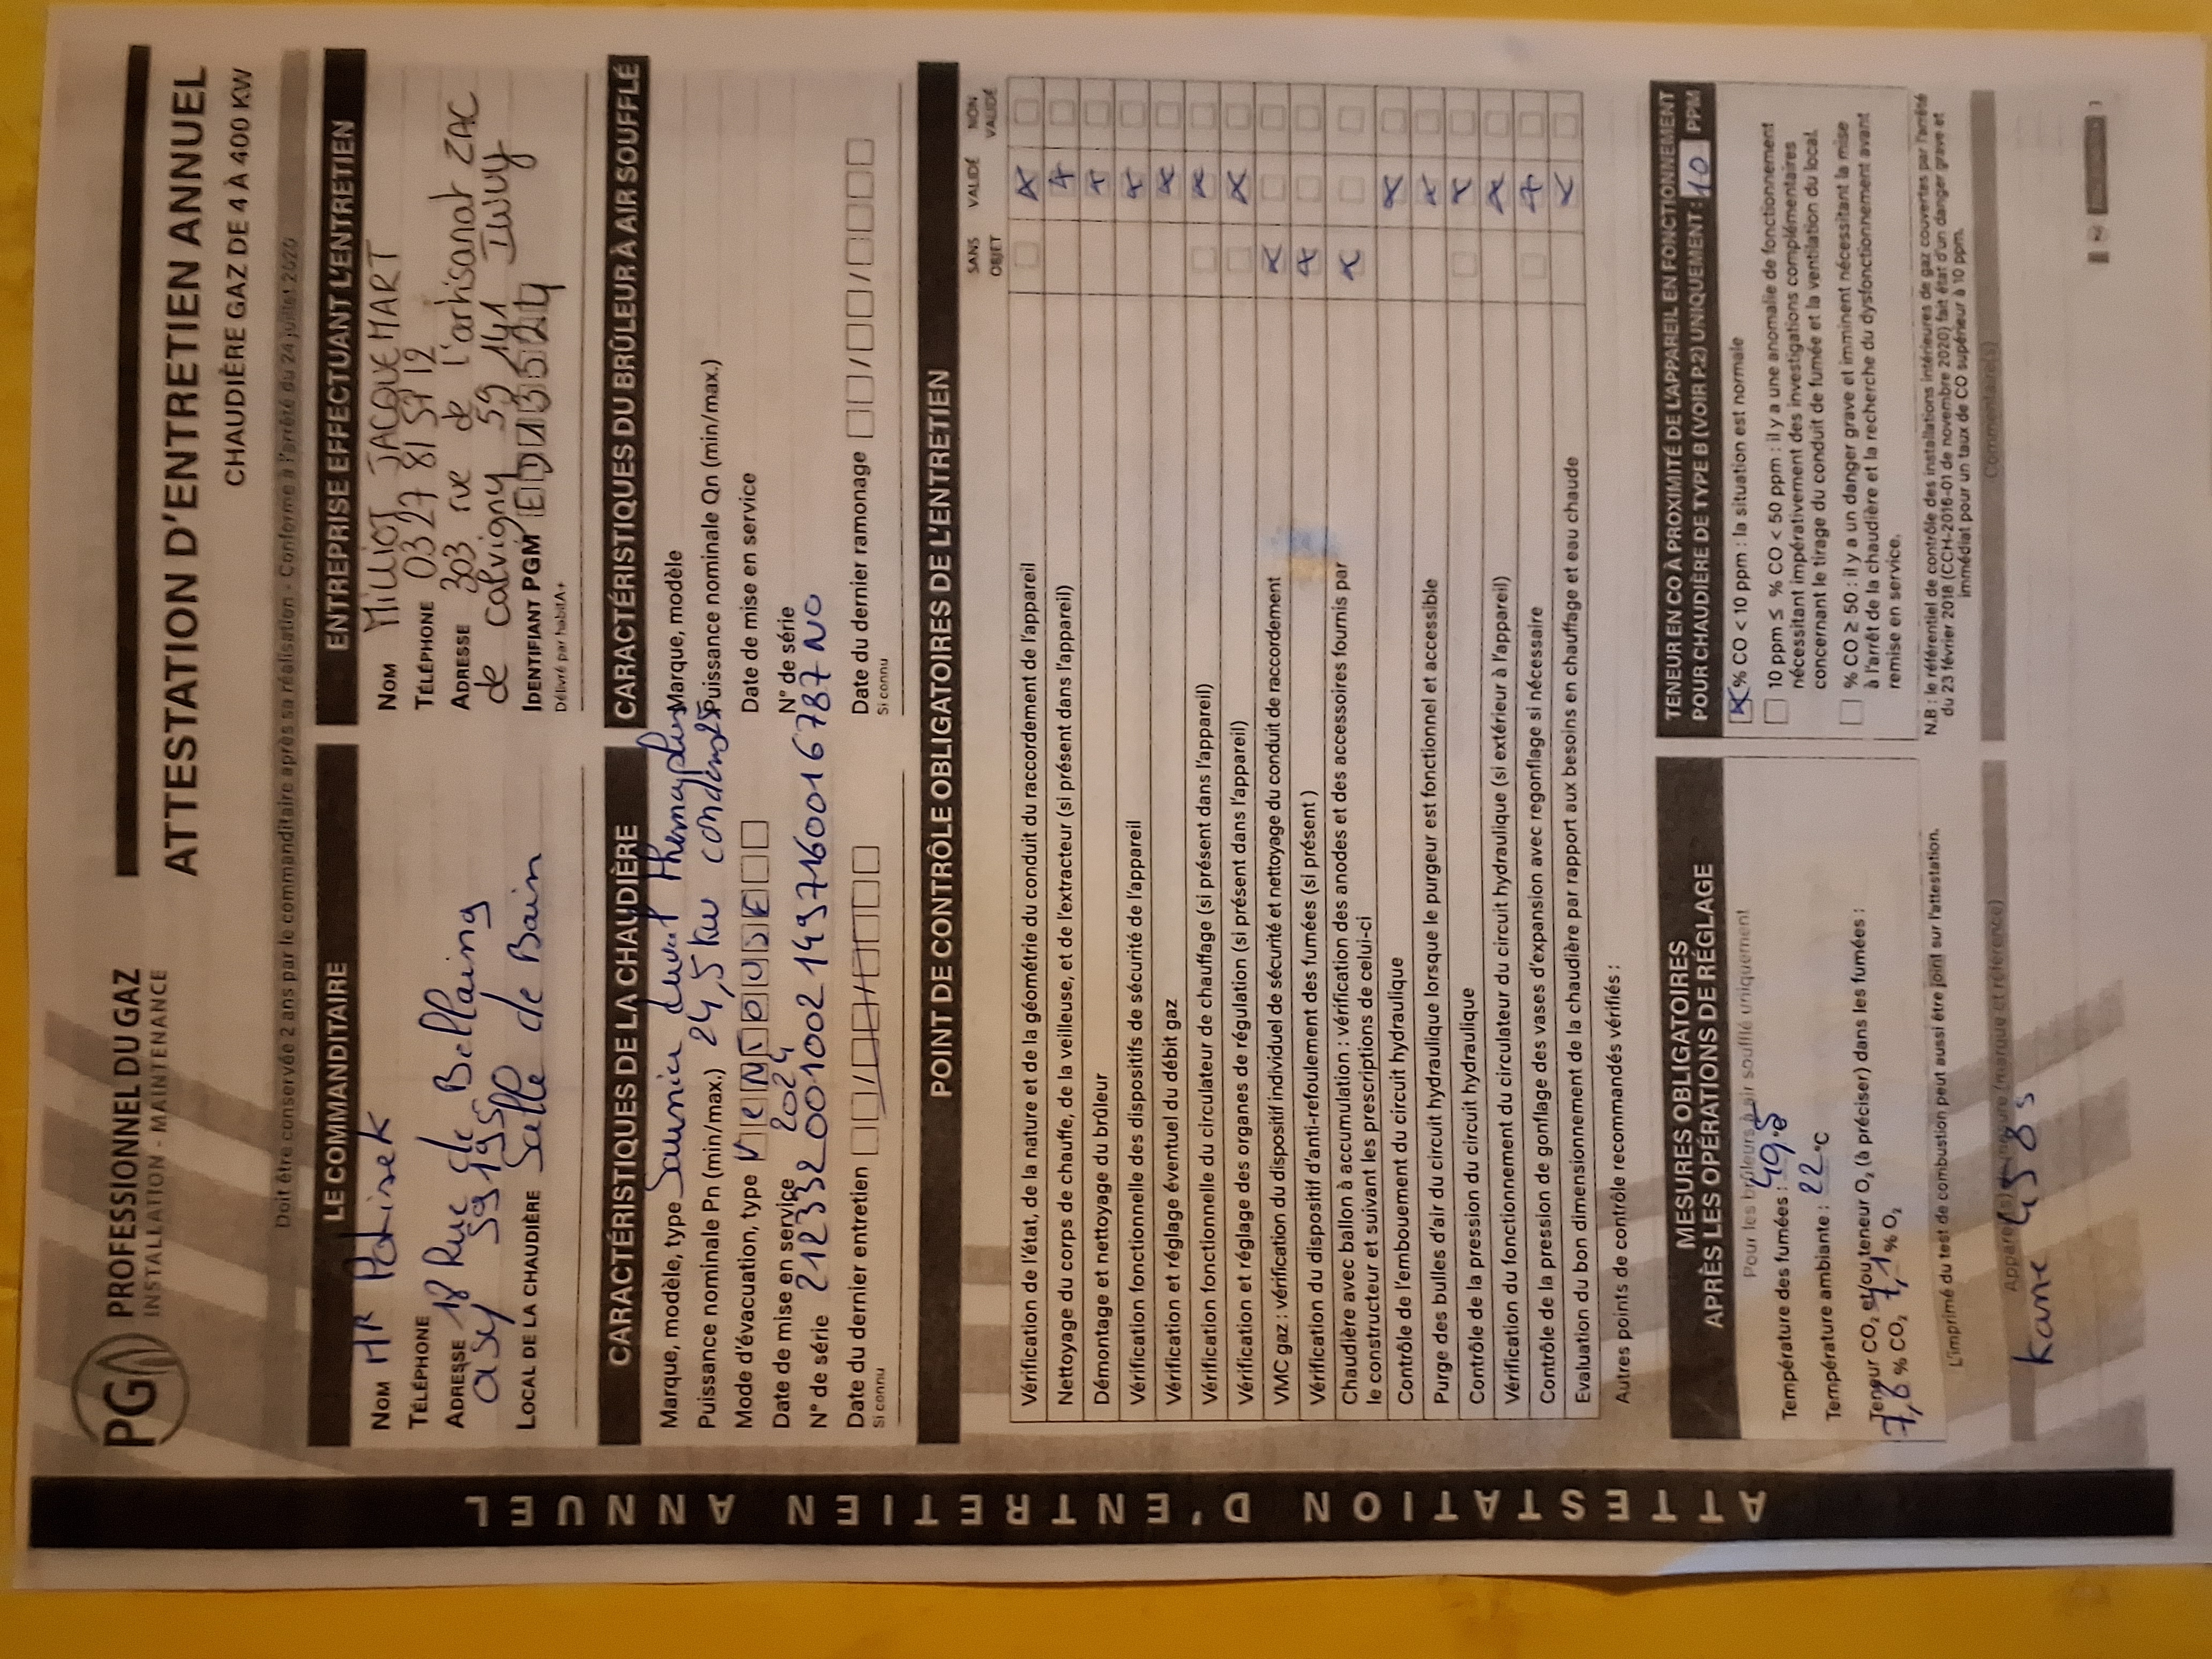 PG PROFESSIONNEL DU GAZ
INSTALLATION - MAINTENANCE
ATTESTATION D'ENTRETIEN ANNUEL
CHAUDIÈRE GAZ DE 4 À 400 KW
Doit être conservée 2 ans par le commanditaire après sa réalisation - Conforme à l'arrêté du 24 juillet 2020
LE COMMANDITAIRE
NOM MR
TÉLÉPHONE
ADRESSE 18 Rue de Bellaing
oisy 59195
LOCAL DE LA CHAUDIÈRE Salle de Bain
ENTREPRISE EFFECTUANT L'ENTRETIEN
NOM MILLIOT JACQUEMART
TÉLÉPHONE 03 27 81 57 12
ADRESSE 303 rue de l'artisanat ZAC
de calvigny 59 141 Iwuy
IDENTIFIANT PGM
Délivré par habitA+
CARACTÉRISTIQUES DE LA CHAUDIÈRE
Marque, modèle, type Saunier duval
Puissance nominale Pn (min/max.) 24,5 kw
Mode d'évacuation, type VENTOUSE
Date de mise en service 2024
N° de série 2123320010021437160016787NO
Date du dernier entretien
Si connu
CARACTÉRISTIQUES DU BRÛLEUR À AIR SOUFFLÉ
Marque, modèle
Puissance nominale Qn (min/max.)
Date de mise en service
N° de série
Date du dernier ramonage
Si connu
POINT DE CONTRÔLE OBLIGATOIRES DE L'ENTRETIEN
SANS OBJET VALIDÉ NON VALIDÉ
Vérification de l'état, de la nature et de la géométrie du conduit du raccordement de l'appareil
Nettoyage du corps de chauffe, de la veilleuse, et de l'extracteur (si présent dans l'appareil)
Démontage et nettoyage du brûleur
Vérification fonctionnelle des dispositifs de sécurité de l'appareil
Vérification et réglage éventuel du débit gaz
Vérification fonctionnelle du circulateur de chauffage (si présent dans l'appareil)
Vérification et réglage des organes de régulation (si présent dans l'appareil)
VMC gaz : vérification du dispositif individuel de sécurité et nettoyage du conduit de raccordement
Vérification du dispositif d'anti-refoulement des fumées (si présent )
Chaudière avec ballon à accumulation : vérification des anodes et des accessoires fournis par
le constructeur et suivant les prescriptions de celui-ci
Contrôle de l'embouement du circuit hydraulique
Purge des bulles d'air du circuit hydraulique lorsque le purgeur est fonctionnel et accessible
Contrôle de la pression du circuit hydraulique
Vérification du fonctionnement du circulateur du circuit hydraulique (si extérieur à l'appareil)
Contrôle de la pression de gonflage des vases d'expansion avec regonflage si nécessaire
Evaluation du bon dimensionnement de la chaudière par rapport aux besoins en chauffage et eau chaude
Autres points de contrôle recommandés vérifiés :
MESURES OBLIGATOIRES
APRÈS LES OPÉRATIONS DE RÉGLAGE
Pour les brûleurs à air soufflé uniquement
Température des fumées :
Température ambiante : 22 °C
Teneur CO₂ et/ou teneur O₂ (à préciser) dans les fumées :
7,8 % CO₂ 7,1 % O₂
L'imprimé du test de combustion peut aussi être joint sur l'attestation.
Appareil(s) de mesure (marque et référence)
kane 458s
TENEUR EN CO À PROXIMITÉ DE L'APPAREIL EN FONCTIONNEMENT
POUR CHAUDIÈRE DE TYPE B (VOIR P.2) UNIQUEMENT : 10 PPM
% CO < 10 ppm : la situation est normale
10 ppm ≤ % CO < 50 ppm : il y a une anomalie de fonctionnement
nécessitant impérativement des investigations complémentaires
concernant le tirage du conduit de fumée et la ventilation du local.
% CO ≥ 50 : il y a un danger grave et imminent nécessitant la mise
à l'arrêt de la chaudière et la recherche du dysfonctionnement avant
remise en service.
N.B : le référentiel de contrôle des installations intérieures de gaz couvertes par l'arrêté
du 23 février 2018 (CCH-2016-01 de novembre 2020) fait état d'un danger grave et
immédiat pour un taux de CO supérieur à 10 ppm.
Commentaire(s)
ATTESTATION D'ENTRETIEN ANNUEL